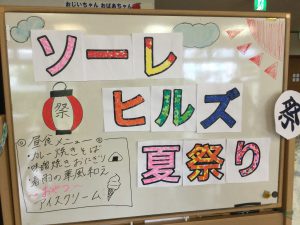 おじいちゃん おばあちゃん
ソーレ
ヒルズ
夏祭り
祭
祭
昼食メニュー
・カレー焼きそば
・味噌焼きおにぎり
アイスクリーム